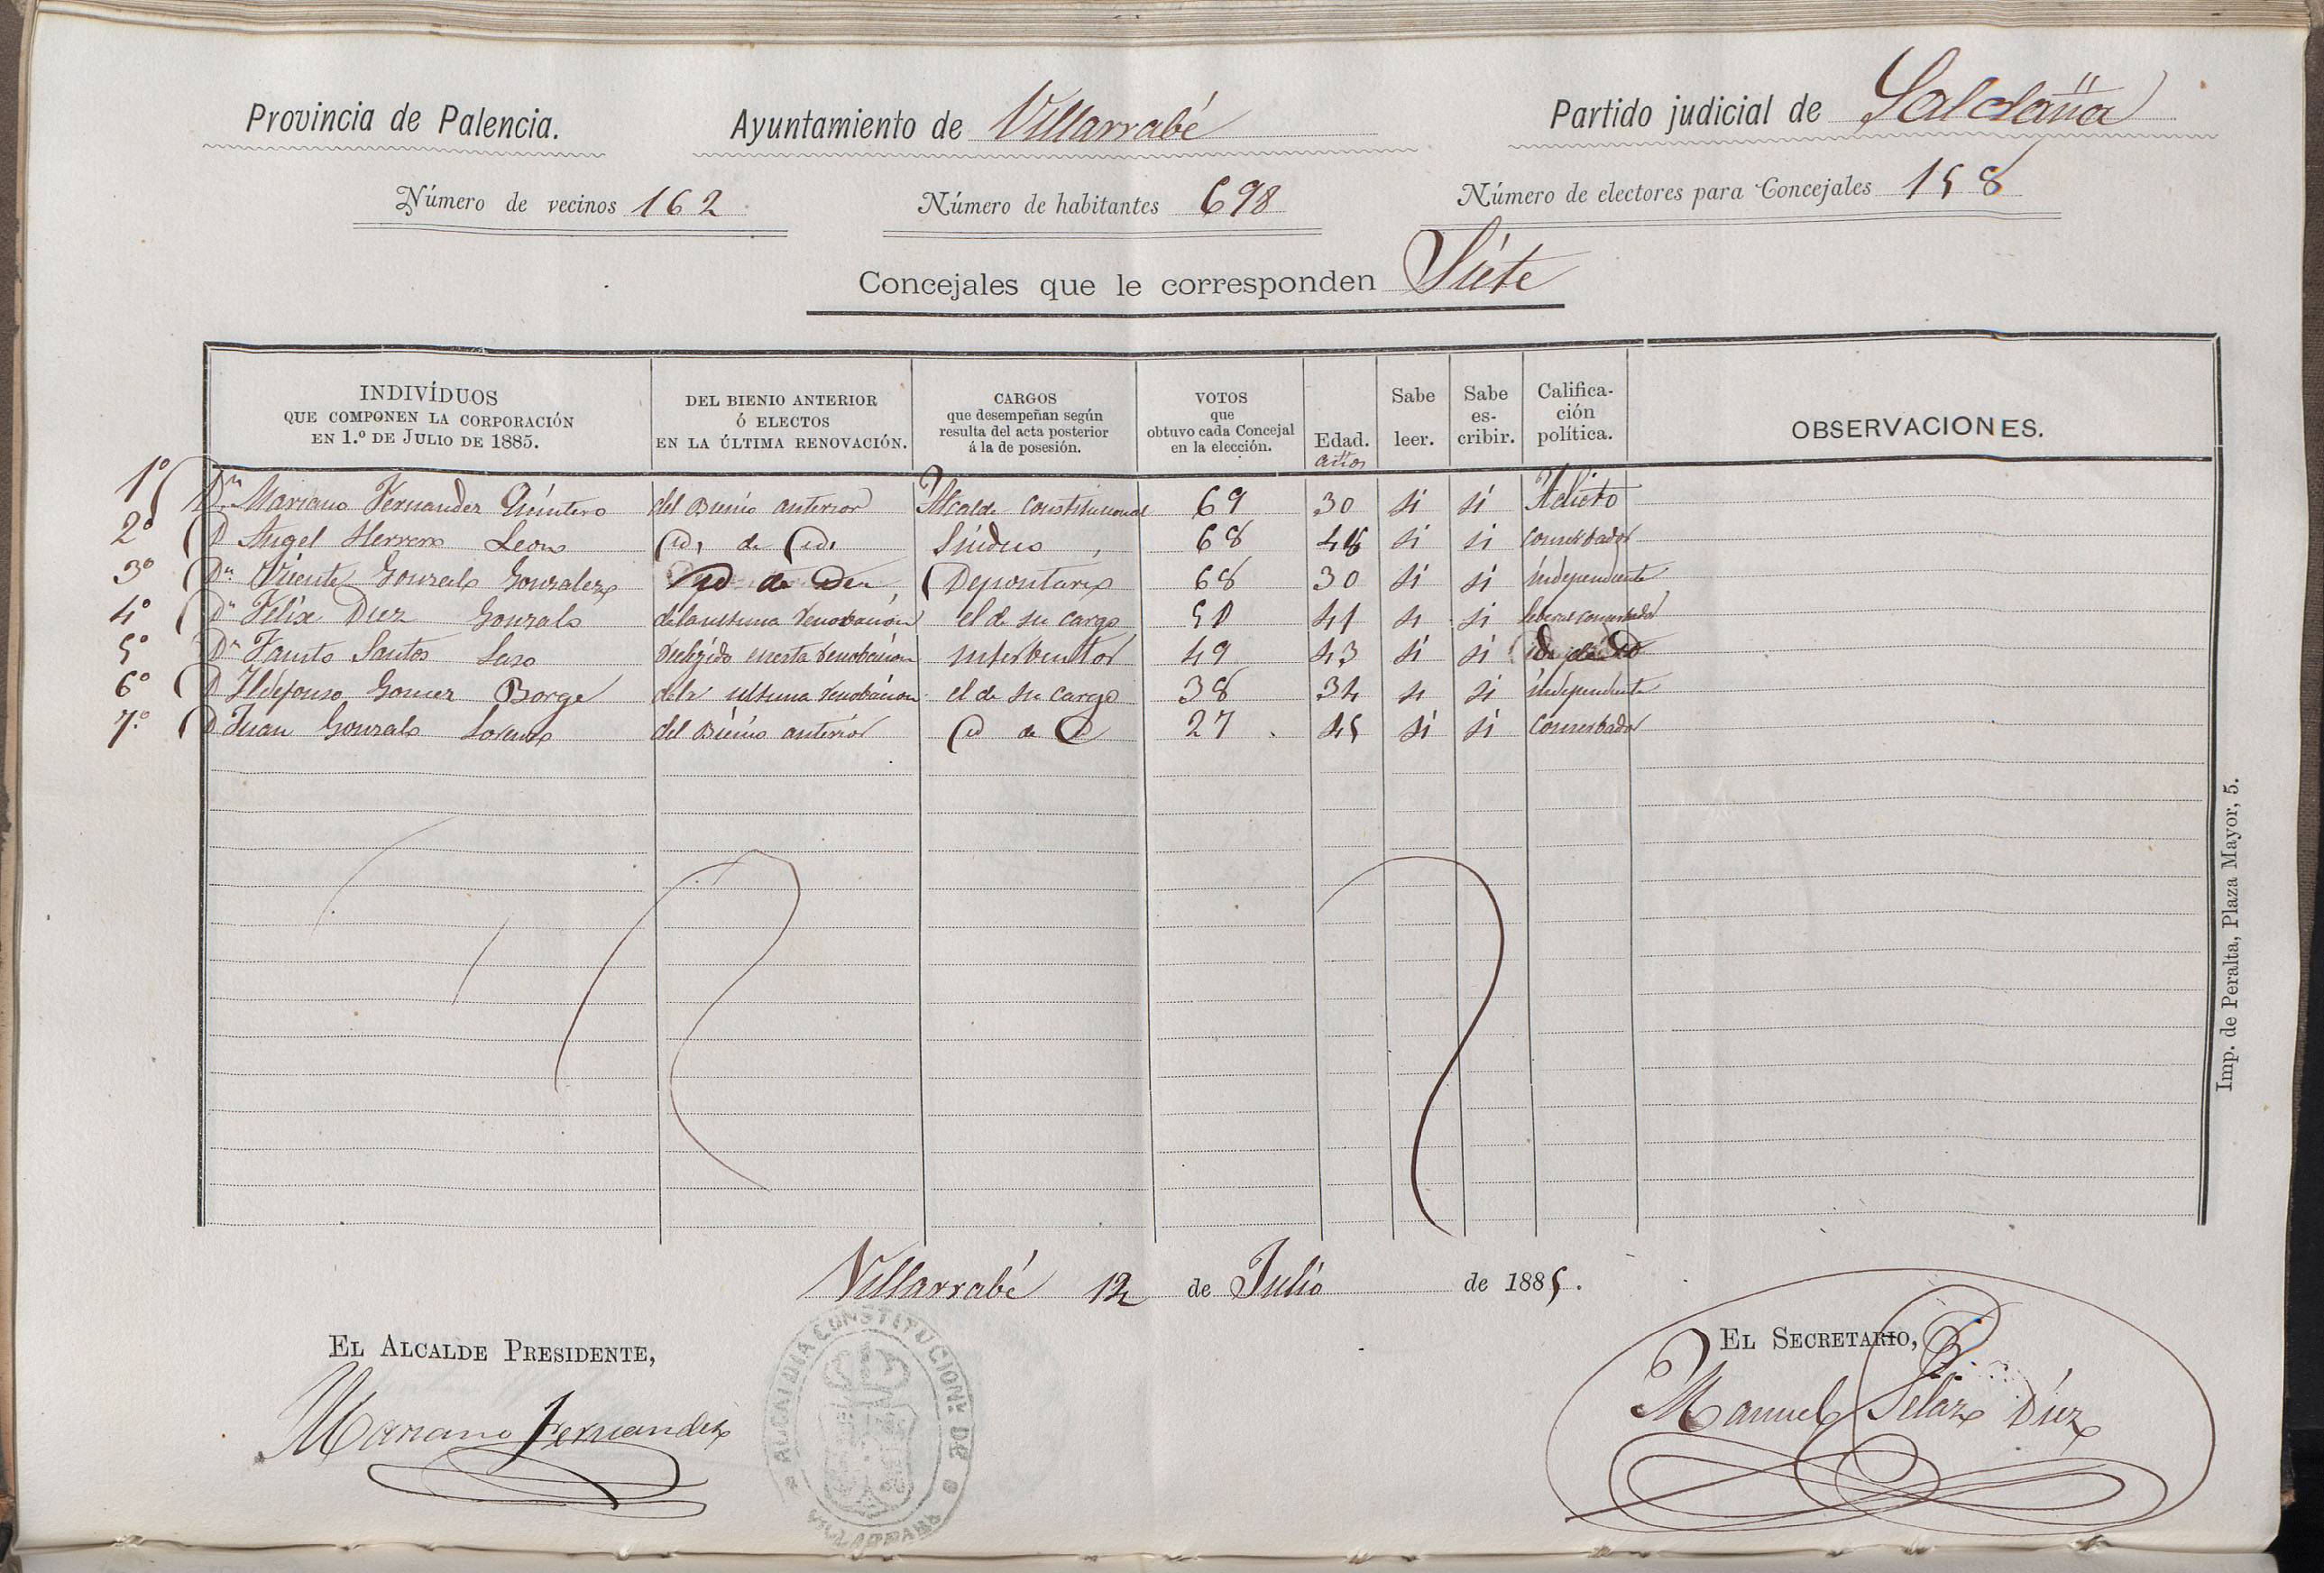 Provincia de Palencia. Ayuntamiento de Villarrabé Partido judicial de Saldaña
Número de vecinos 162 Número de habitantes 698 Número de electores para Concejales 158
Concejales que le corresponden Siete
INDIVÍDUOS QUE COMPONEN LA CORPORACIÓN EN 1.º DE JULIO DE 1885. DEL BIENIO ANTERIOR Ó ELECTOS EN LA ÚLTIMA RENOVACIÓN. CARGOS que desempeñan según resulta del acta posterior á la de posesión. VOTOS que obtuvo cada Concejal en la elección. Edad. años Sabe leer. Sabe escribir. Calificación política. OBSERVACIONES.
1º Dn Mariano Fernandez Quintero del Bienio anterior Alcalde constitucional 69 30 si si Adicto
2º D Angel Herrero Leon id, de id, Sindico 68 si si conserbador
3º Dn Vicente Gonzalo Gonzalez Depositario 68 30 si si independiente
4º Dn Felix Diez Gonzalo de la ultima renovacion el de su cargo 50 41 si si liberal conserbador
5º Dn Fausto Santos Laso reelejido en esta renobacion interbentor 49 43 si si
6º D Ildefonso Gomez Borge de la ultima renobacion el de su cargo 38 34 si si independiente
7.º D Juan Gonzalo Lorenzo del Bienio anterior id de id 27 45 si si conserbador
Villarrabé 12 de Julio de 1885.
EL ALCALDE PRESIDENTE, EL SECRETARIO,
Mariano Fernandez Manuel Pelaz Diez
ALCALDIA CONSTITUCIONL DE VILLARRABÉ
Imp. de Peralta, Plaza Mayor, 5.